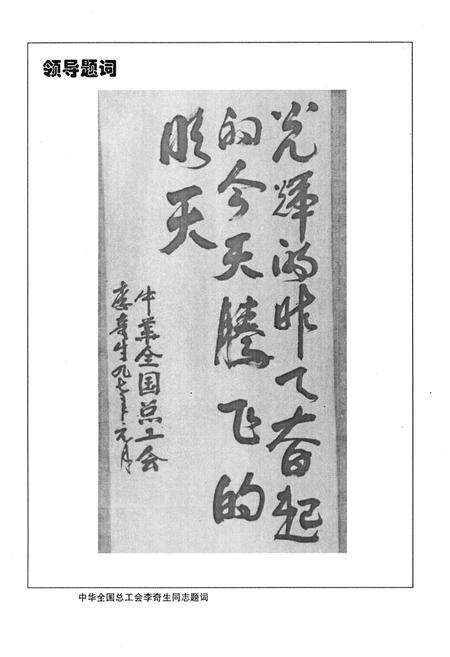 领导题词
光辉的昨天奋起
的今天腾飞的
明天
中华全国总工会
李奇生九七年元月
中华全国总工会李奇生同志题词